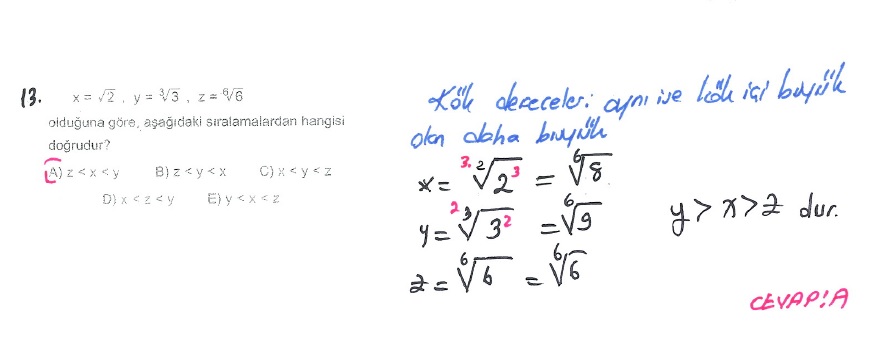 13. x = √2 , y = ∛3 , z = ⁶√6
olduğuna göre, aşağıdaki sıralamalardan hangisi
doğrudur?
A) z < x < y B) z < y < x C) x < y < z
D) x < z < y E) y < x < z
Kök dereceleri aynı ise kök içi büyük
olan daha büyük
x = ³·²√2³ = ⁶√8
y = ²·³√3² = ⁶√9
z = ⁶√6 = ⁶√6
y > x > z dur.
CEVAP: A